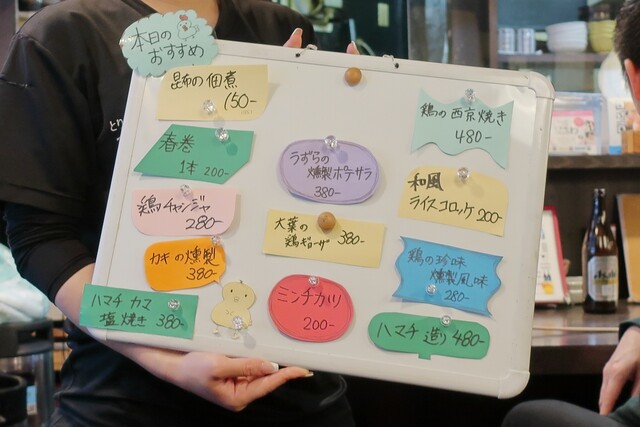 本日の
おすすめ
昆布の佃煮
150-
春巻
1本 200-
鶏チャンジャ
280-
カキの燻製
380-
ハマチカマ
塩焼き 380-
うずらの
燻製ポテサラ
380-
大葉の
鶏ギョーザ 380-
ミンチカツ
200-
鶏の西京焼き
480-
和風
ライスコロッケ 200-
鶏の珍味
燻製風味
280-
ハマチ造り 480-